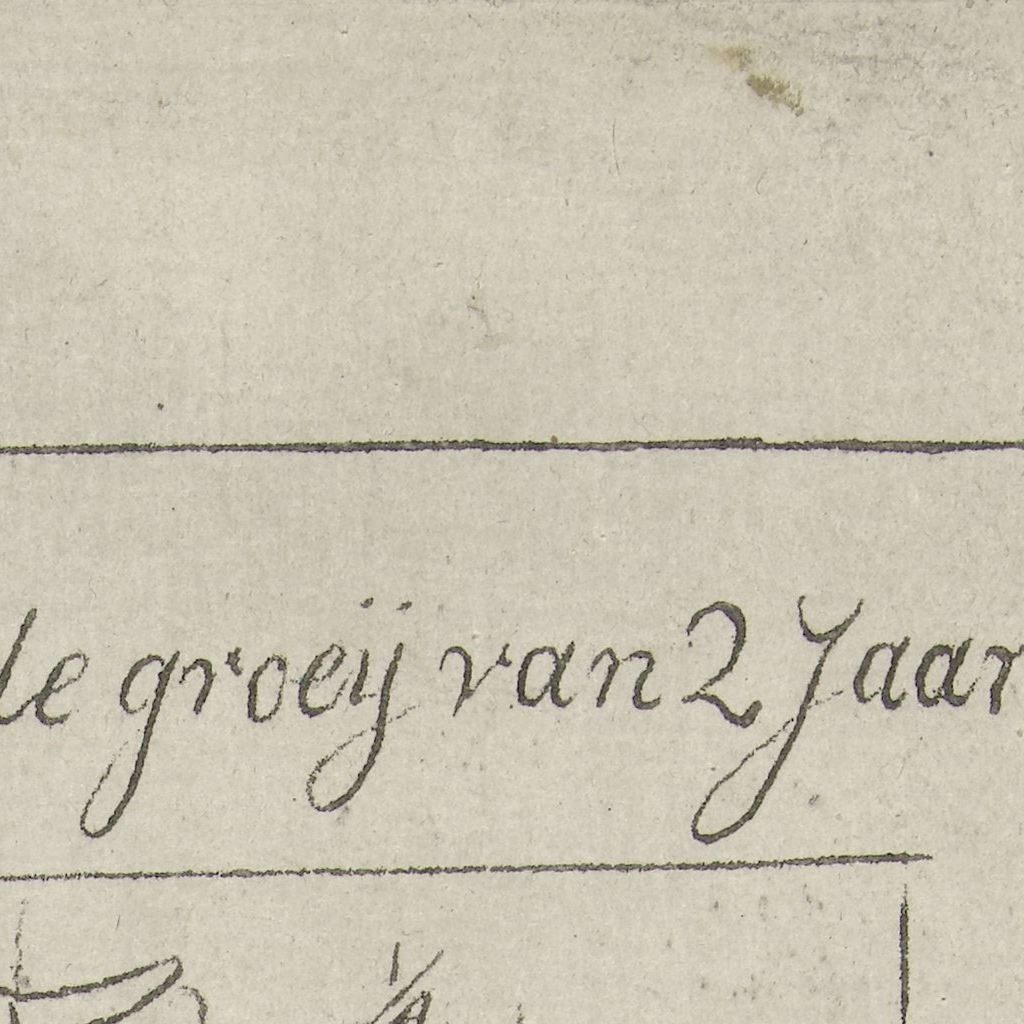 de groeij van 2 Jaar